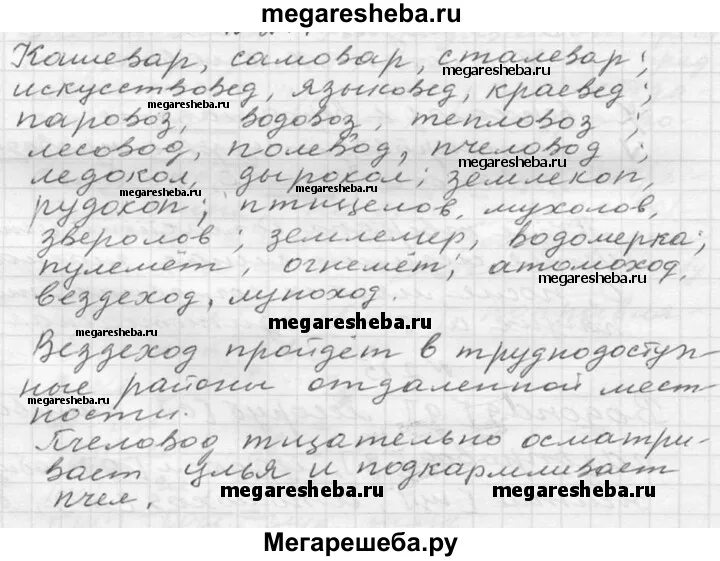 megaresheba.ru
Кашевар, самовар, сталевар;
megaresheba.ru
искусствовед, языковед, краевед;
megaresheba.ru
паровоз, водовоз, тепловоз;
megaresheba.ru
лесовод, полевод, пчеловод;
megaresheba.ru
ледокол, дырокол; землекоп,
megaresheba.ru
рудокоп; птицелов, мухолов,
зверолов; землемер, водомерка;
пулемёт, огнемёт; атомоход,
megaresheba.ru
вездеход, луноход.
megaresheba.ru
megaresheba.ru
Вездеход пройдёт в труднодоступ-
ные районы отдаленной мест-
megaresheba.ru
ности.
Пчеловод тщательно осматри-
вает улья и подкармливает
пчел.
megaresheba.ru megaresheba.ru
Мегарешеба.ру